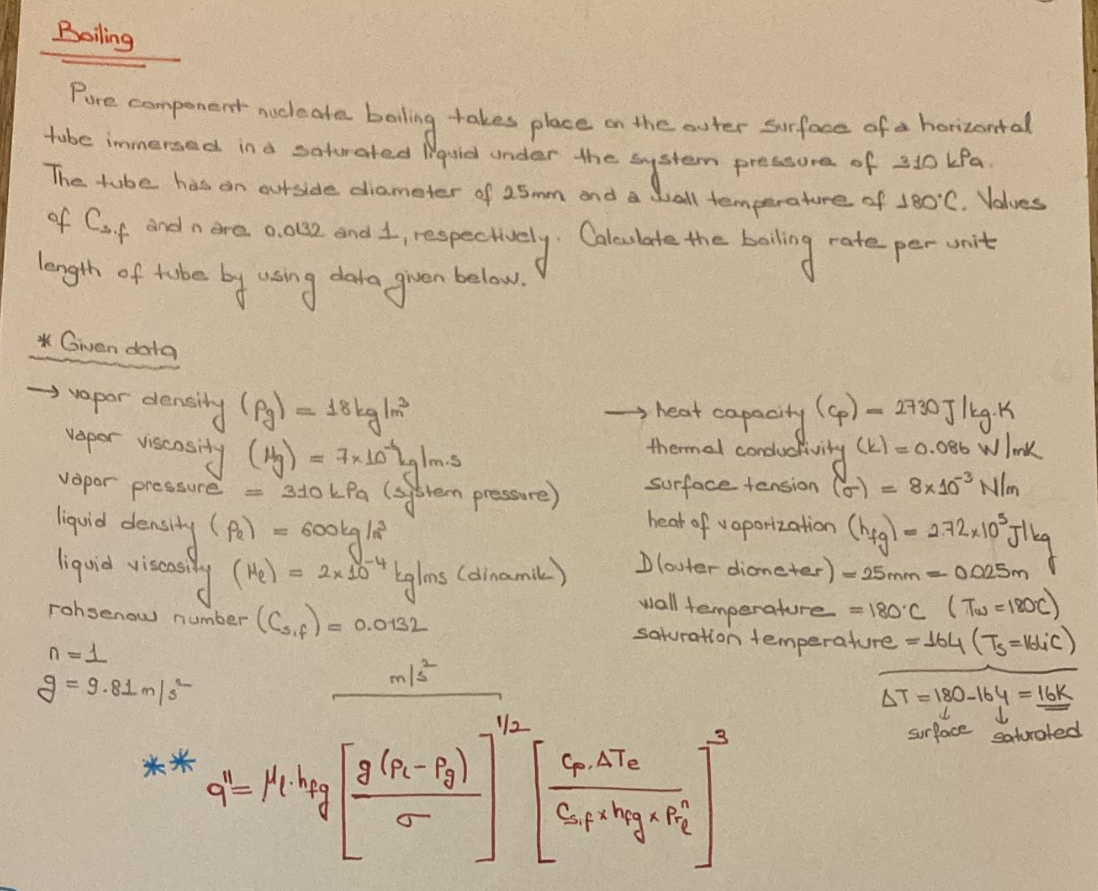 Boiling
Pure component nucleate boiling takes place on the outer surface of a horizontal
tube immersed in a saturated liquid under the system pressure of 310 kPa.
The tube has an outside diameter of 25mm and a wall temperature of 180°C. Values
of Cs.f and n are 0.0132 and 1, respectively. Calculate the boiling rate per unit
length of tube by using data given below.
* Given data
→ vapor density (ρg) = 18 kg/m³
vapor viscosity (μg) = 7x10 kg/m.s
vapor pressure = 310 kPa (system pressure)
liquid density (ρℓ) = 600 kg/m³
liquid viscosity (μℓ) = 2x10⁻⁴ kg/ms (dinamik)
rohsenow number (Cs,f) = 0.0132
n = 1
g = 9.81 m/s²
→ heat capacity (cp) = 2730 J/kg.K
thermal conductivity (k) = 0.086 W/mK
surface tension (σ) = 8x10⁻³ N/m
heat of vaporization (hfg) = 2.72x10⁵ J/kg
D(outer diameter) = 25mm = 0.025m
wall temperature = 180°C (Tw = 180C)
saturation temperature = 164 (Ts = 164C)
ΔT = 180-164 = 16K
surface saturated
m/s²
** q" = μℓ.hfg [g(ρL - ρg) / σ]^1/2 [cp.ΔTe / Cs,f x hfg x Prℓ^n]^3